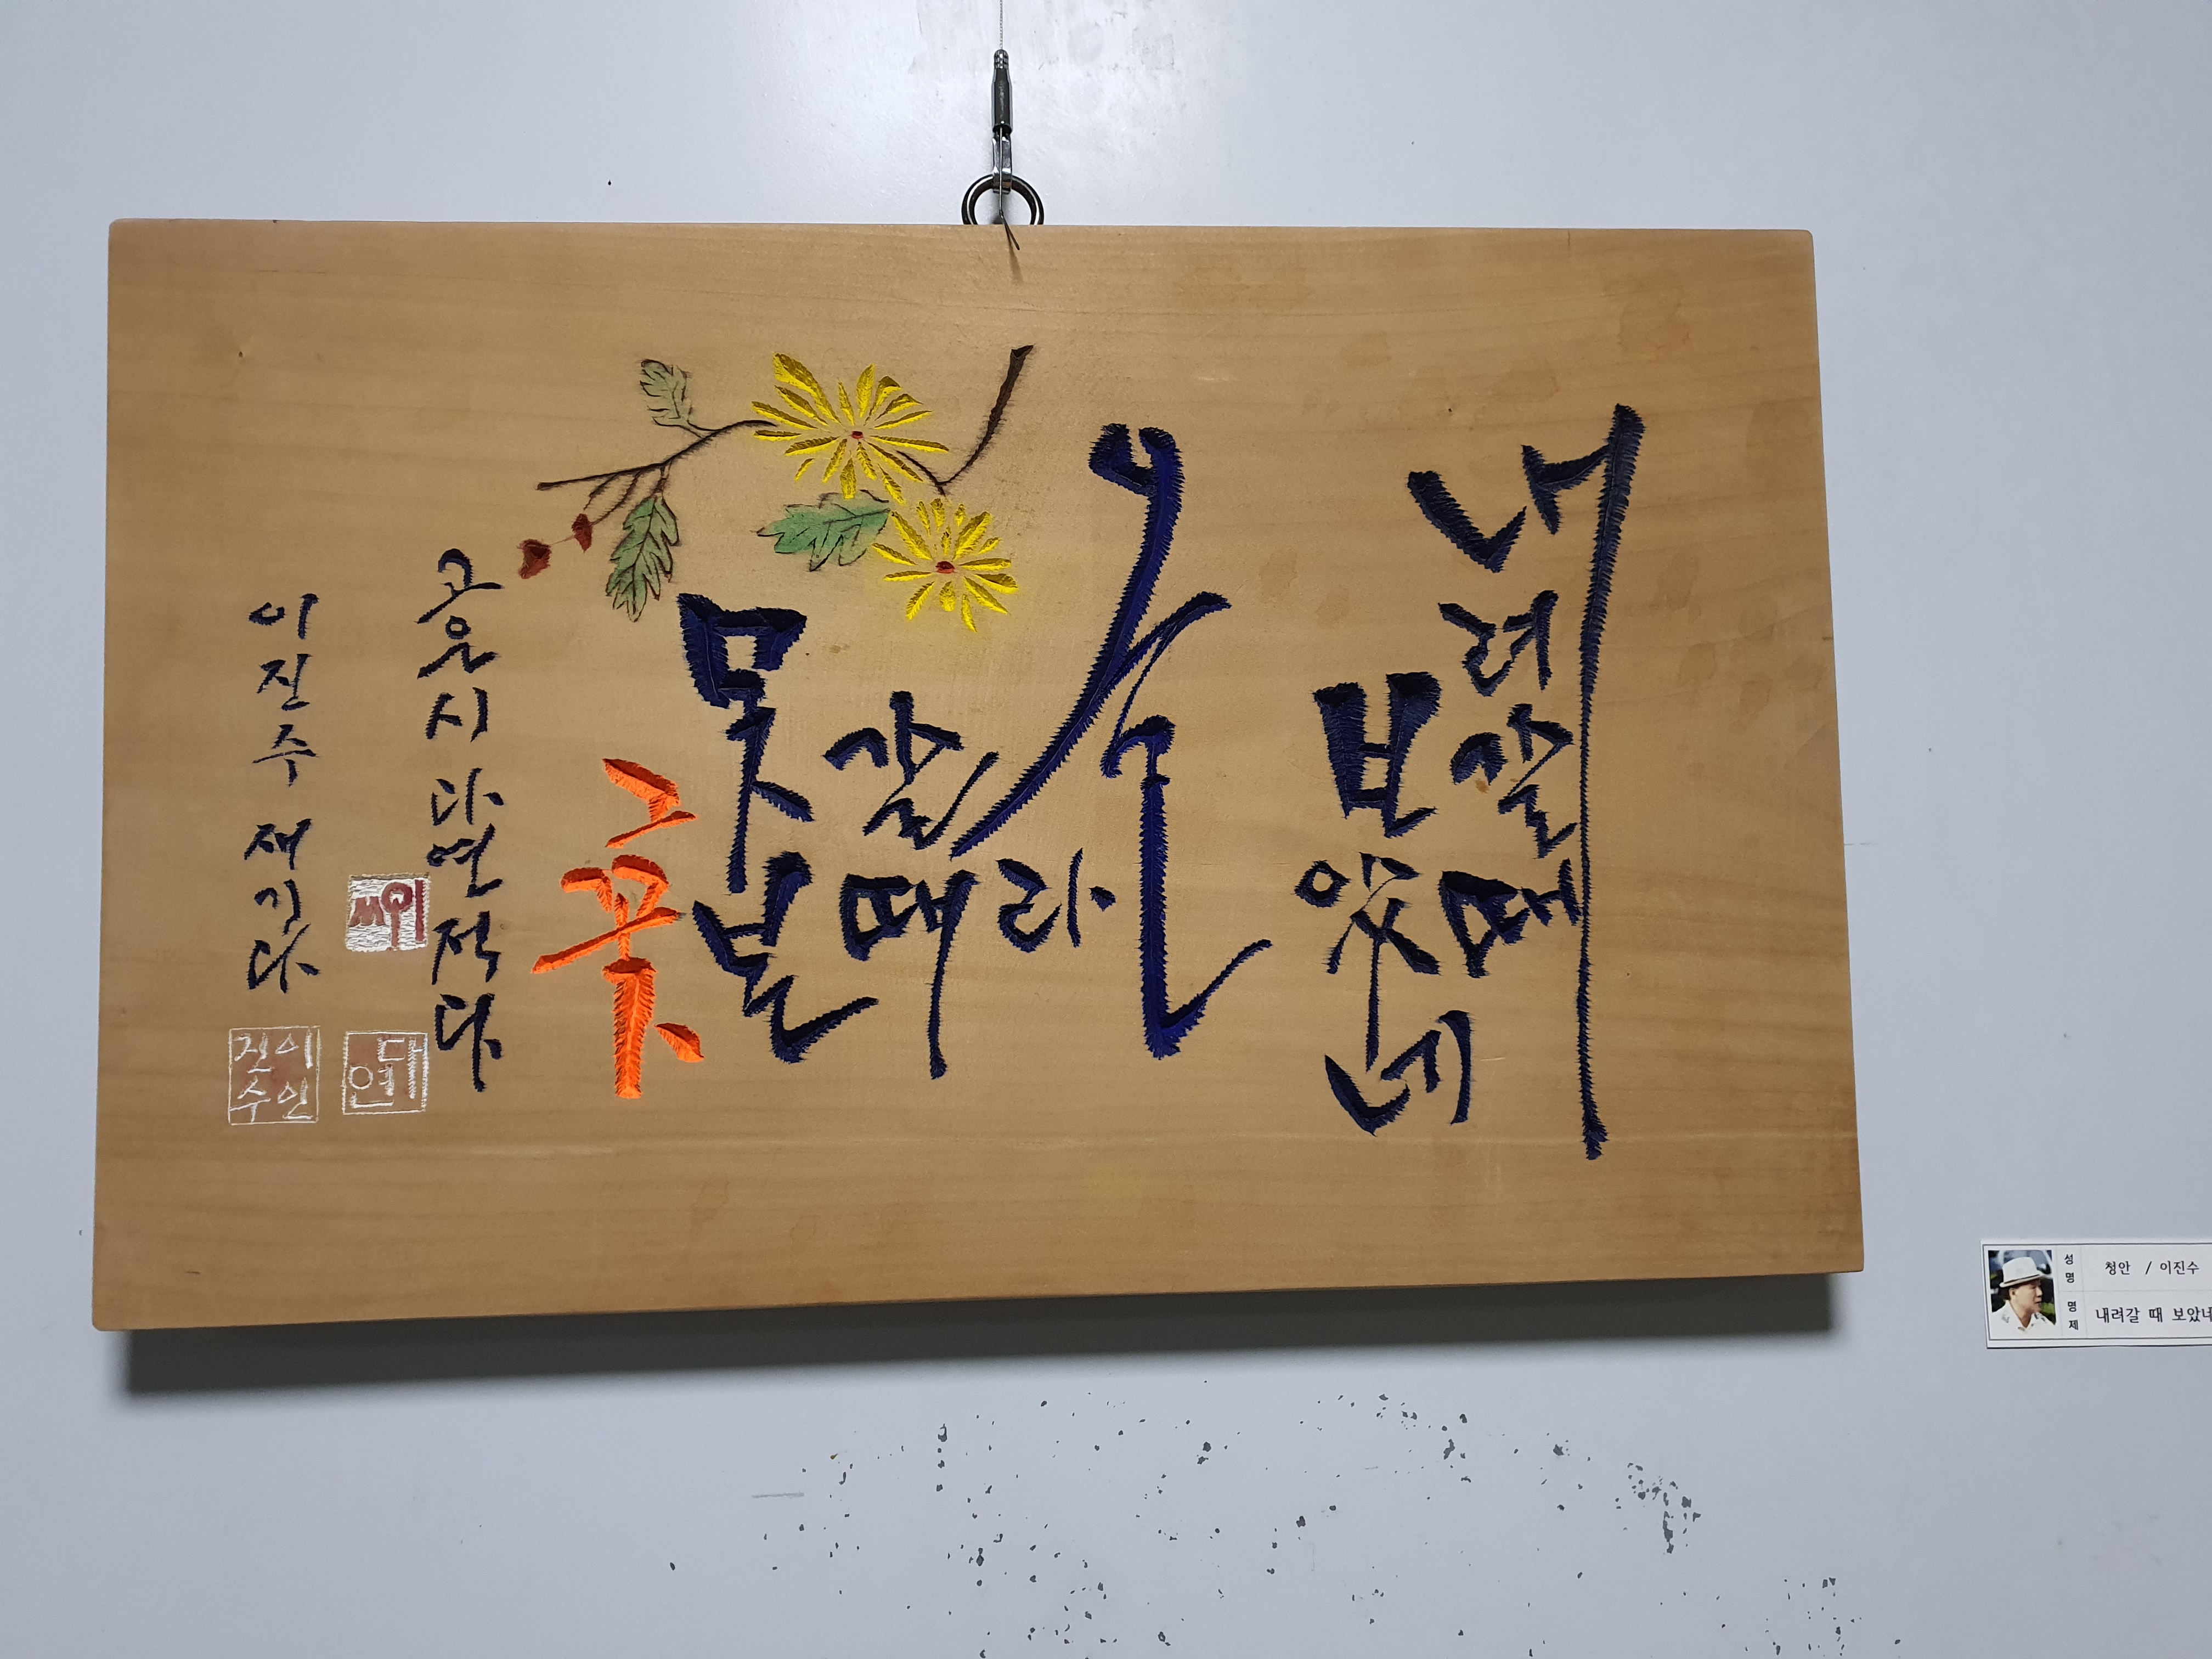 내려갈때
보았네
올라
갈때
못본
그꽃
고은 시 다연 적다
이진수 새기다
다연
이진수인
성명 청안 / 이진수
명제 내려갈 때 보았네